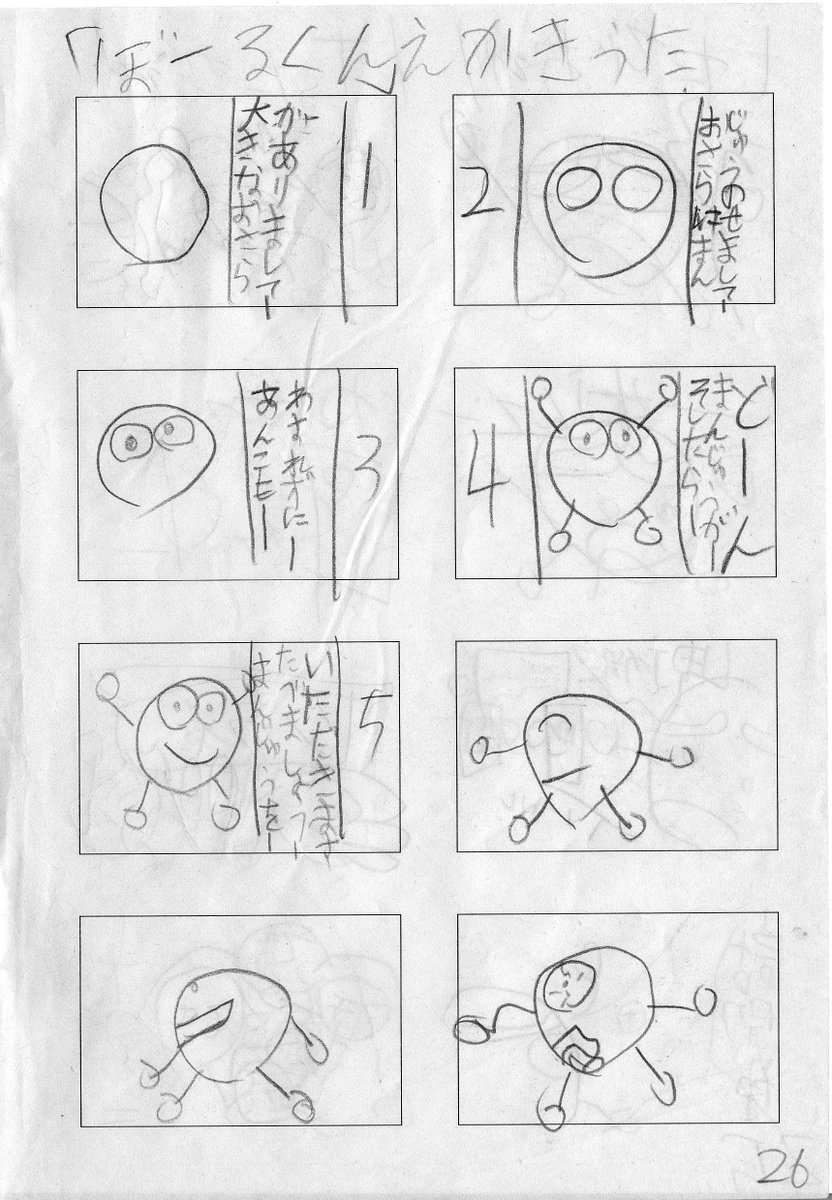 「ぼーるくん」えかきうた
1
大きなおさら
がありましてー
2
おさらにまん
じゅうのせましてー
3
あんこもー
わすれずにー
4
そしたらー
まんじゅうがー
どーん
5
まんじゅうをー
たべましょうー
いただきます
26